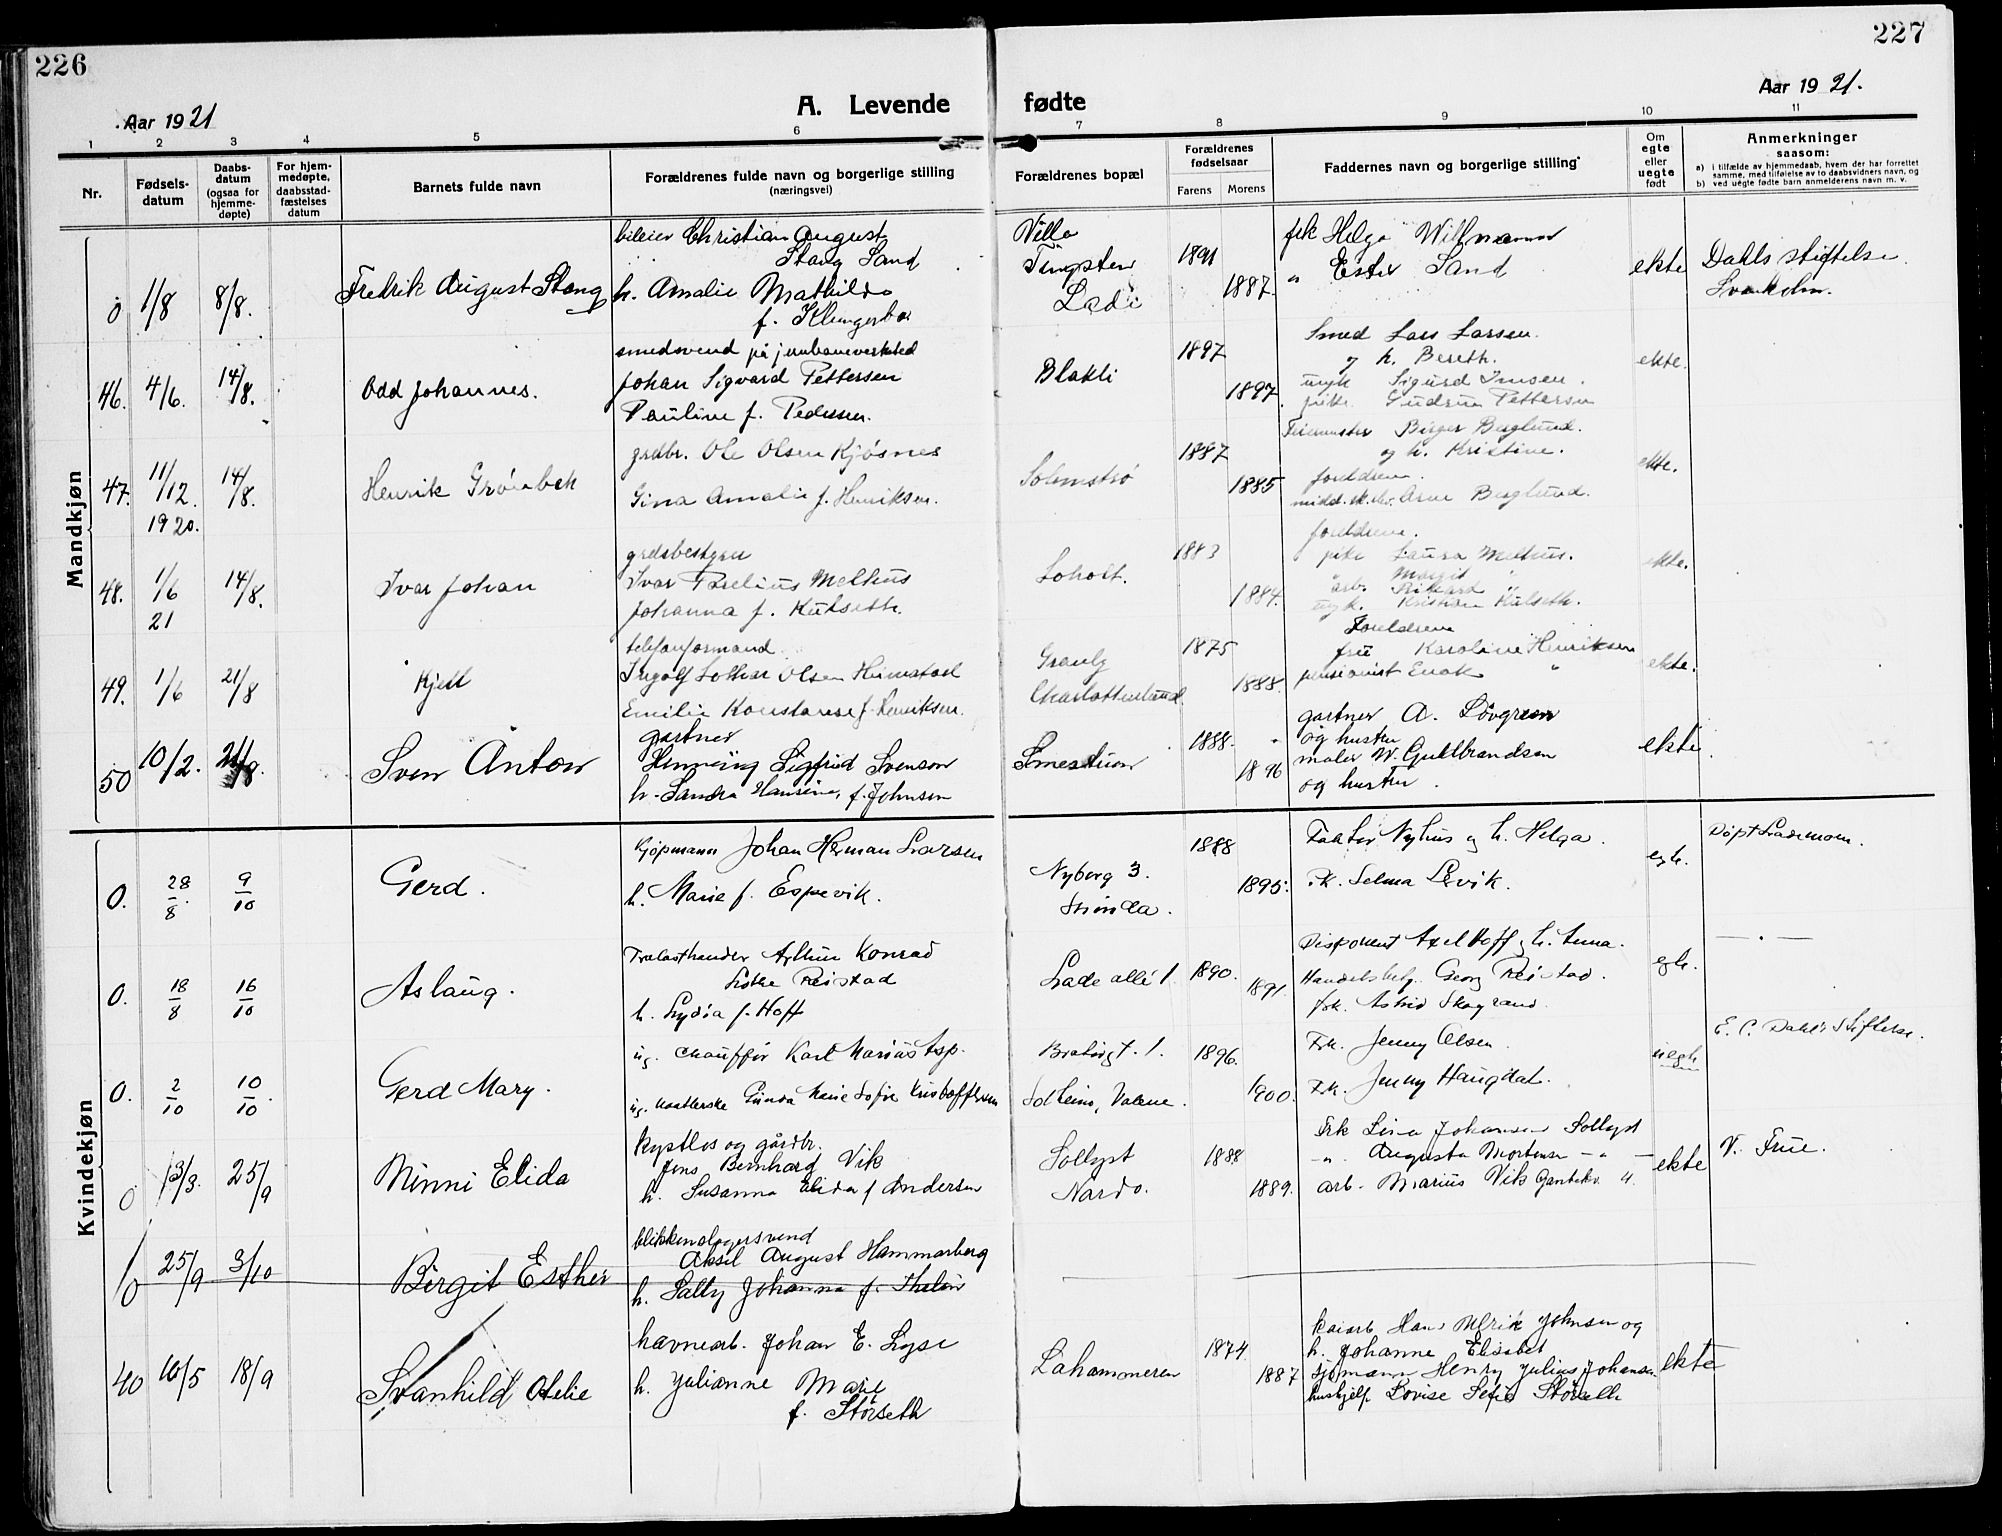 226
227
Aar 1921
A. Levende fødte
Aar 1921.
1 2 3 4 5 6 7 8 9 10 11
Nr.
Fødsels-datum
Daabs-datum (ogsaa for hjemme-døpte)
For hjem-medøpte, daabsstad-fæstelses datum
Barnets fulde navn
Forældrenes fulde navn og borgerlige stilling (næringsvei)
Forældrenes bopæl
Forældrenes fødselsaar
Farens
Morens
Faddernes navn og borgerlige stilling
Om egte eller uegte født
Anmerkninger saasom:
a) i tilfælde av hjemmedaab, hvem der har forrettet samme, med tilføielse av to daabsvidners navn, og
b) ved uegte fødte barn anmelderens navn m. v.
Mandkjøn
0 1/8 8/8.
Fredrik August Stang
bileier Christian August
Stang Sand
h. Amalie Mathilde
f. Klungerbo
Villa
Tingsten
Lade
1891
1887.
frk Helga
" Ester Sand
ekte
Dahls stiftelse.
46. 4/6. 14/8.
Odd Johannes.
smedsvend på jernbaneverksted
Johan Sigvard Pettersen
Pauline f. Pedersen.
Blakli
1897
1897.
Smed Lars Larsen.
og h. Bereth.
ungk. Sigurd Imsen.
pike Gudrun Pettersen
ekte.
47. 11/12. 1920. 14/8.
Henrik Grönbek
grdbr. Ole Olsen Kjøsnes
Gina Amalie f. Henriksen.
Solmstrø
1887
1885
Feiermester Birger Berglund.
og h. Kristine.
foreldrene.
midd.sk.elev. Arne Berglund.
ekte.
48. 1/6 21 14/8.
Ivar Johan
grdsbestyrer
Ivar Melhus
Johanna f. Kulseth.
Loholt.
1883
1884.
foreldrene.
pike Laura Melhus.
" Margit "
arb. Rikard "
ungk. Kristian Kulseth.
ekte.
49. 1/6 21/8
Kjell
telefonformand
Ingolf Lothar Olsen Heimstad
Emilie Konstanse f. Henriksen.
Granly
Charlottenlund.
1875
1888.
Foreldrene
frü Karoline Henriksen
pensionist Enok "
ekte.
50 10/2. 21/8.
Sven Anton
gartner
Henning Sigfrid Svenson
h. Sandra Hansine, f. Johnsen
1888.
1896
gartner A. Lövgren
og hustru
maler W. Gullbrandsen
og hustru.
ekte.
Kvindekjøn
0. 28/8. 9/10
Gerd.
Kjöpmann Johan Herman Larsen
h. Marie f. Espevik.
Nyborg 3.
Strinda.
1888
1895.
Faktor Nyhus og h. Helga.
Fk. Selma Lervik.
egte.
Döpt Lademoen.
0. 18/8 16/10
Aslaug.
Trælasthandler Arthur Konrad
Reistad
h. Lydia f. Hoff
Lade allé 1.
1890.
1891.
Disponent Axel Hoff og h. Anna.
Handelsbef. Georg Reistad.
frk. Astrid Skogrand.
egte.
— . —
0. 2/10 10/10.
Gerd Mary.
ug. Chauffør Karl Marius Asp.
ug. Gunda Marie Sofie Kristoffersen
Bratörgt. 1.
Solheim, Valene.
1896.
1900.
Frk. Jenny Olsen.
Frk. Jenny Haugdal.
uegte
E. C. Dahls Stiftelse.
0 13/3. 25/9
Minni Elida
Kystlos og gårdbr.
Jens Bernhard Vik
h. Susanna Elida f Andersen
Sollyst
Nardo.
1888
1889.
Frk Lina Johansen Sollyst
-"- Augusta Mortensen -"-
arb. Marius Vik
ekte
V. Frue.
0 25/9 3/10
Birgit Esther
blikkenslagersvend
Aksel August Hammarberg
h. Sally Johanna f. Thelin
40 10/5 18/9
Svanhild Otelie
havnearb. Johan E. Lyse
h. Julianne Marie
f. Störseth
Lahammeren
1874.
1887
kaiarb Hans Ulrik Johnsen og
h. Johanne Elisabet
sjömann Henry Julius Johansen
hushjelp Lovise Sofie Störseth
ekte